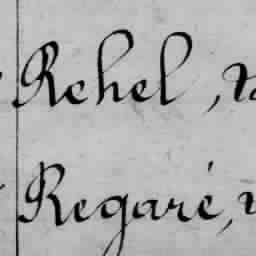 Rehel,
Regaré,